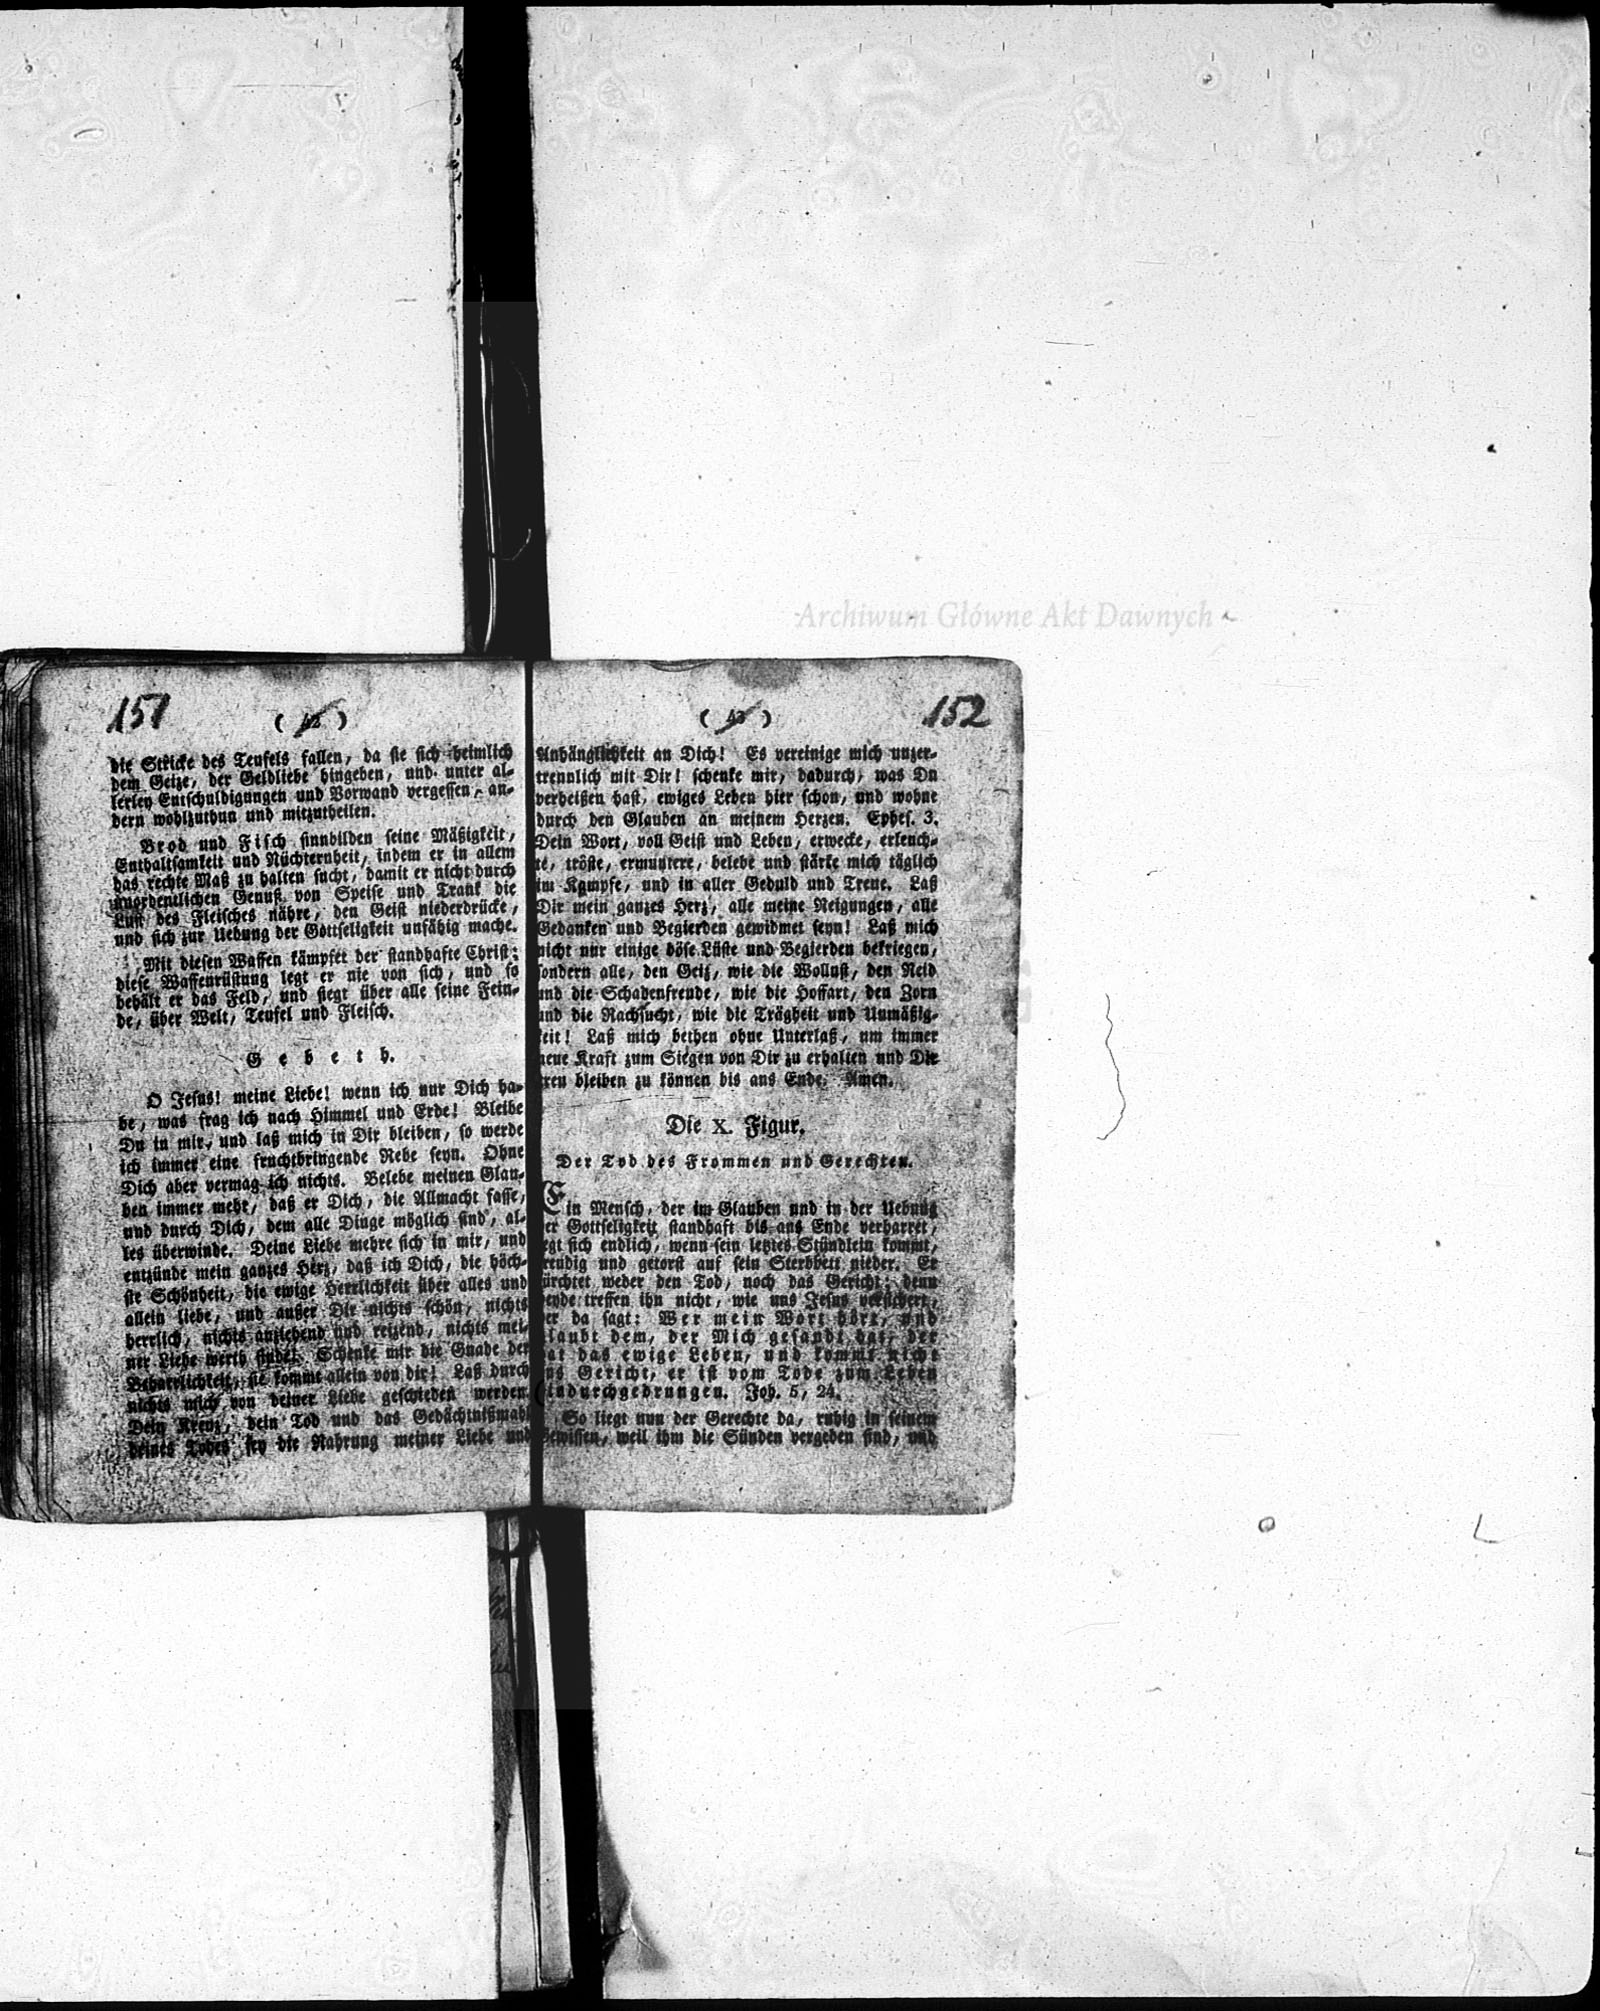 Archiwum Główne Akt Dawnych
151
( 42 )
die Stricke des Teufels fallen, da sie sich heimlich
dem Geize, der Geldliebe hingeben, und unter al-
lerley Entschuldigungen und Vorwand vergessen, an-
dern wohlzuthun und mitzutheilen.
Brod und Fisch sinnbilden seine Mäßigkeit,
Enthaltsamkeit und Nüchternheit, indem er in allem
das rechte Maß zu halten sucht, damit er nicht durch
unordentlichen Genuß von Speise und Trank die
Lust des Fleisches nähre, den Geist niederdrücke,
und sich zur Uebung der Gottseligkeit unfähig mache.
Mit diesen Waffen kämpfet der standhafte Christ;
diese Waffenrüstung legt er nie von sich, und so
behält er das Feld, und siegt über alle seine Fein-
de, über Welt, Teufel und Fleisch.
Gebeth.
O Jesus! meine Liebe! wenn ich nur Dich ha-
be, was frag ich nach Himmel und Erde! Bleibe
Du in mir, und laß mich in Dir bleiben, so werde
ich immer eine fruchtbringende Rebe seyn. Ohne
Dich aber vermag ich nichts. Belebe meinen Glau-
ben immer mehr, daß er Dich, die Allmacht fasse,
und durch Dich, dem alle Dinge möglich sind, al-
les überwinde. Deine Liebe mehre sich in mir, und
entzünde mein ganzes Herz, daß ich Dich, die höch-
ste Schönheit, die ewige Herrlichkeit über alles und
allein liebe, und außer Dir nichts schön, nichts
herrlich, nichts anziehend und reizend, nichts mei-
ner Liebe werth findet. Schenke mir die Gnade der
Beharrlichkeit, sie kommt allein von dir! Laß durch
nichts mich von deiner Liebe geschieden werden.
Dein Kreuz, dein Tod und das Gedächtnißmahl
deines Todes sey die Nahrung meiner Liebe und
152
( 43 )
Anhänglichkeit an Dich! Es vereinige mich unzer-
trennlich mit Dir! schenke mir, dadurch, was Du
verheißen hast, ewiges Leben hier schon, und wohne
durch den Glauben an meinem Herzen. Ephes. 3.
Dein Wort, voll Geist und Leben, erwecke, erleuch-
te, tröste, ermuntere, belebe und stärke mich täglich
im Kampfe, und in aller Geduld und Treue. Laß
Dir mein ganzes Herz, alle meine Neigungen, alle
Gedanken und Begierden gewidmet seyn! Laß mich
nicht nur einige böse Lüste und Begierden bekriegen,
sondern alle, den Geiz, wie die Wollust, den Neid
und die Schadenfreude, wie die Hoffart, den Zorn
und die Rachsucht, wie die Trägheit und Unmäßig-
keit! Laß mich bethen ohne Unterlaß, um immer
neue Kraft zum Siegen von Dir zu erhalten und Dir
treu bleiben zu können bis ans Ende. Amen.
Die X. Figur.
Der Tod des Frommen und Gerechten.
Ein Mensch, der im Glauben und in der Uebung
der Gottseligkeit standhaft bis ans Ende verharret,
legt sich endlich, wenn sein letztes Stündlein kommt,
freudig und getrost auf sein Sterbbett nieder. Er
fürchtet weder den Tod, noch das Gericht; denn
beyde treffen ihn nicht, wie uns Jesus versichert,
der da sagt: Wer mein Wort hört, und
glaubt dem, der Mich gesandt hat, der
hat das ewige Leben, und kommt nicht
ins Gericht, er ist vom Tode zum Leben
hindurchgedrungen. Joh. 5, 24.
So liegt nun der Gerechte da, ruhig in seinem
Gewissen, weil ihm die Sünden vergeben sind, und